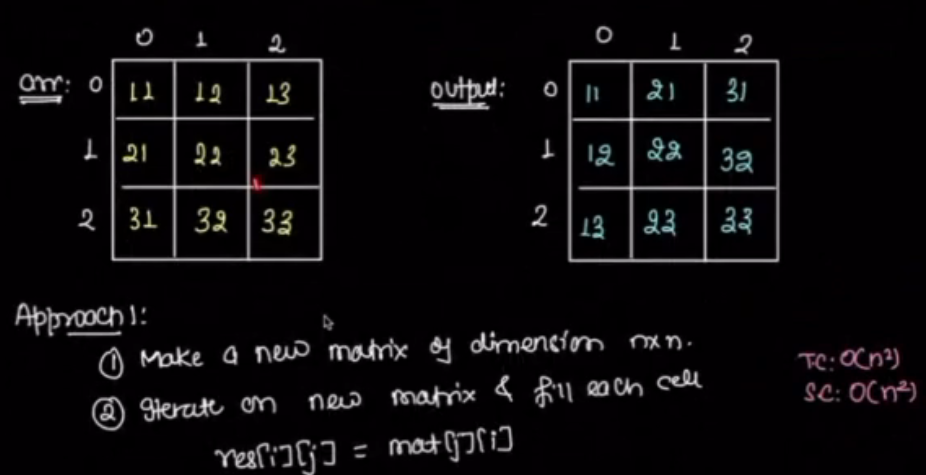 0 1 2
arr: 0 11 12 13
1 21 22 23
2 31 32 33
0 1 2
output: 0 11 21 31
1 12 22 32
2 13 23 33
Approach 1:
① Make a new matrix of dimension nxn.
② Iterate on new matrix & fill each cell
res[i][j] = mat[j][i]
TC: O(n²)
SC: O(n²)